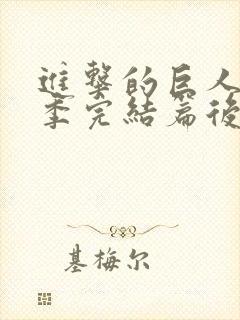 進擊的巨人
季完結篇後
基梅尔